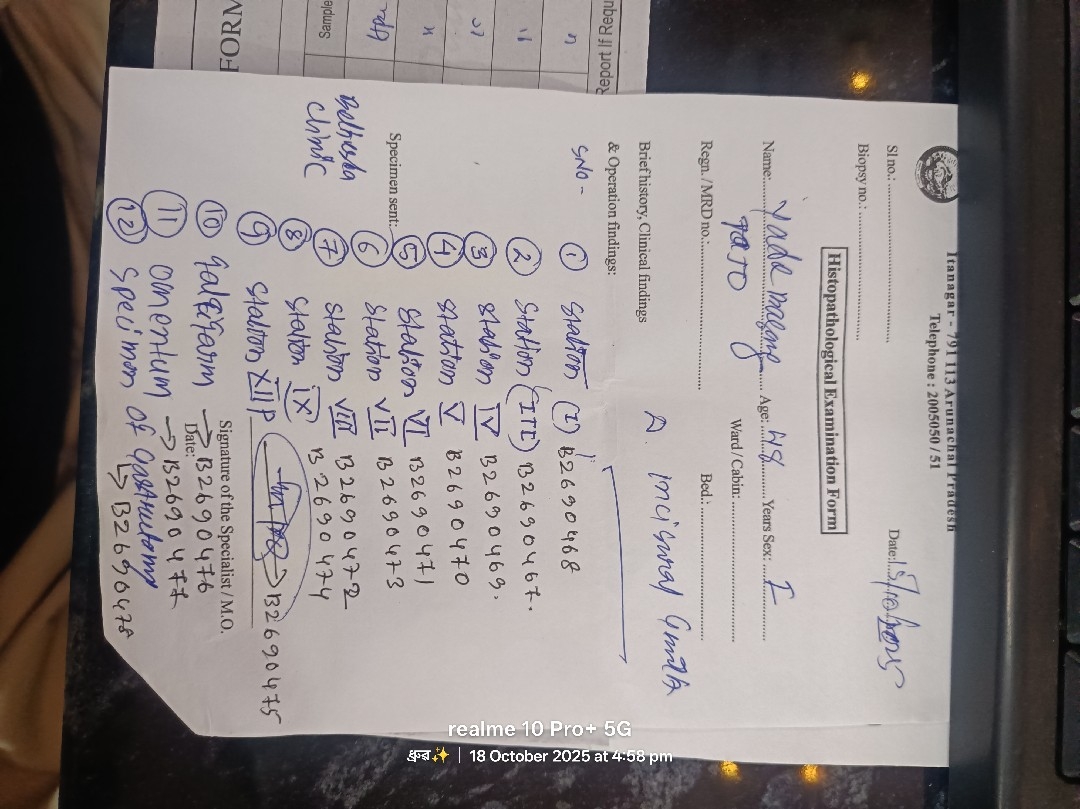 Itanagar - 791113 Arunachal Pradesh
Telephone : 2005050 / 51
Sl no.:
Date:
Biopsy no.:
Histopathological Examination Form
Name: Age: 48 Years Sex:
Regn. / MRD no.: Ward / Cabin: Bed.:
Brief history, Clinical findings
& Operation findings:
SNO -
① Station (I) B2690468
② Station (III) B2690467.
③ Station IV B2690469.
④ Station V B2690470
⑤ Station VI B2690471
Specimen sent:
⑥ Station VII B2690473
⑦ Station VIII B2690472
Clinic
⑧ Station IX B2690474
⑨ Station XII P → B2690475
Signature of the Specialist / M.O.
Date:
⑩ → B2690476
⑪ Omentum → B2690477
⑫ Specimen of
↳ B2690478
FORM
Sample
Report If
realme 10 Pro+ 5G
ধ্রুব✨ | 18 October 2025 at 4:58 pm